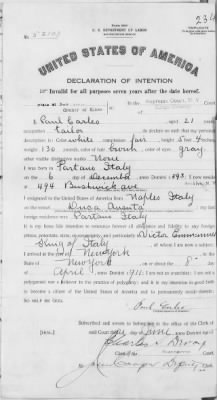 Form 2203
U. S. DEPARTMENT OF LABOR
NATURALIZATION SERVICE
UNITED STATES OF AMERICA
DECLARATION OF INTENTION
Invalid for all purposes seven years after the date hereof.
County of Kings
Supreme Court, N. Y.
I, Paul Carleo, aged 21 years,
occupation Tailor, do declare on oath that my personal
description is: Color white, complexion fair, height 5 feet 4 inches,
weight 130 pounds, color of hair brown, color of eyes gray
other visible distinctive marks None
I was born in Partanna Italy
on the day of December, anno Domini 1893; I now reside
at 494 Bushwick ave
I emigrated to the United States of America from Naples Italy
on the vessel; my last
foreign residence was Partanna Italy
It is my bona fide intention to renounce forever all allegiance and fidelity to any foreign
prince, potentate, state, or sovereignty, and particularly to Victor Emmanuel
King of Italy
I arrived at the port of New York, in the
State of New York, on or about the 8 day
of April, anno Domini 1911; I am not an anarchist; I am not a
polygamist nor a believer in the practice of polygamy; and it is my intention in good faith
to become a citizen of the United States of America and to permanently reside therein:
SO HELP ME GOD.
Paul Carleo
Subscribed and sworn to before me in the office of the Clerk of
said Court this day of
Charles S. Devoy
Clerk